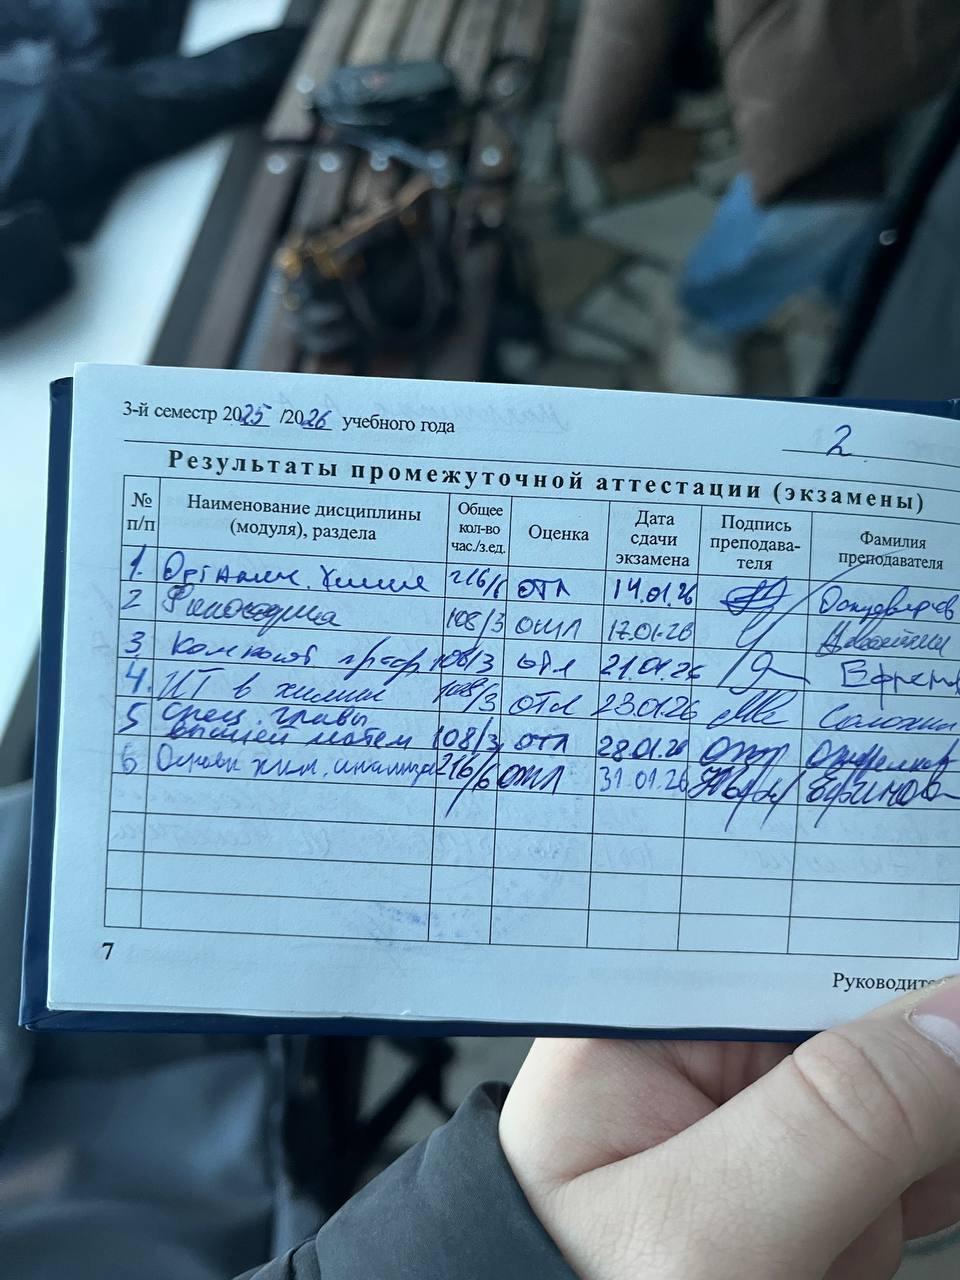 3-й семестр 2025 /2026 учебного года
2
Результаты промежуточной аттестации (экзамены)
№ п/п Наименование дисциплины (модуля), раздела Общее кол-во час./з.ед. Оценка Дата сдачи экзамена Подпись преподава-теля Фамилия преподавателя
1. Органич. Химия 216/6 отл 14.01.26
2 Философия 108/3 отл 17.01.26
3 108/3 отл 21.01.26
4. ИТ в химии 108/3 отл 23.01.26
5 Спец. главы
высшей матем 108/3 отл 28.01.26
6 Основы хим. анализа 216/6 отл 31.01.26
7